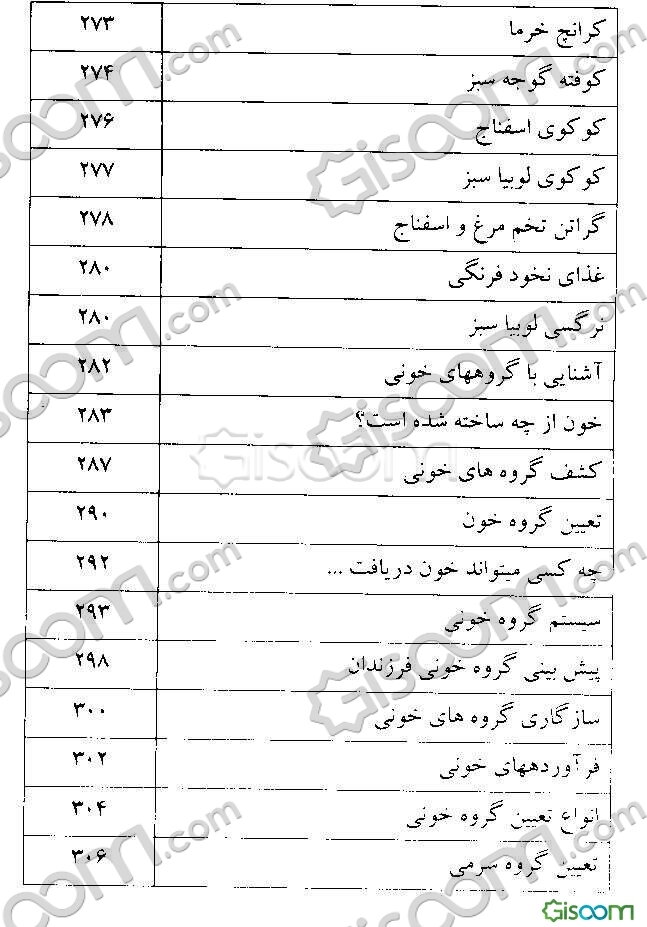 کرانچ خرما ۲۷۳
کوفته گوجه سبز ۲۷۴
کوکوی اسفناج ۲۷۶
کوکوی لوبیا سبز ۲۷۷
گراتن تخم مرغ و اسفناج ۲۷۸
غذای نخود فرنگی ۲۸۰
نرگسی لوبیا سبز ۲۸۰
آشنایی با گروههای خونی ۲۸۲
خون از چه ساخته شده است؟ ۲۸۳
کشف گروه های خونی ۲۸۷
تعیین گروه خون ۲۹۰
چه کسی میتواند خون دریافت ... ۲۹۲
سیستم گروه خونی ۲۹۳
پیش بینی گروه خونی فرزندان ۲۹۸
سازگاری گروه های خونی ۳۰۰
فرآوردههای خونی ۳۰۲
انواع تعیین گروه خونی ۳۰۴
تعیین گروه سرمی ۳۰۶
Gisoom.com
Gisoom